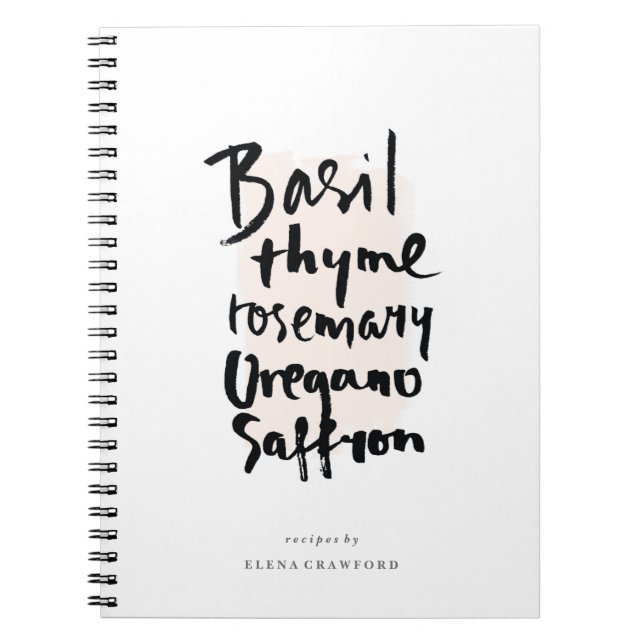 Basil
thyme
rosemary
Oregano
Saffron
recipes by
ELENA CRAWFORD